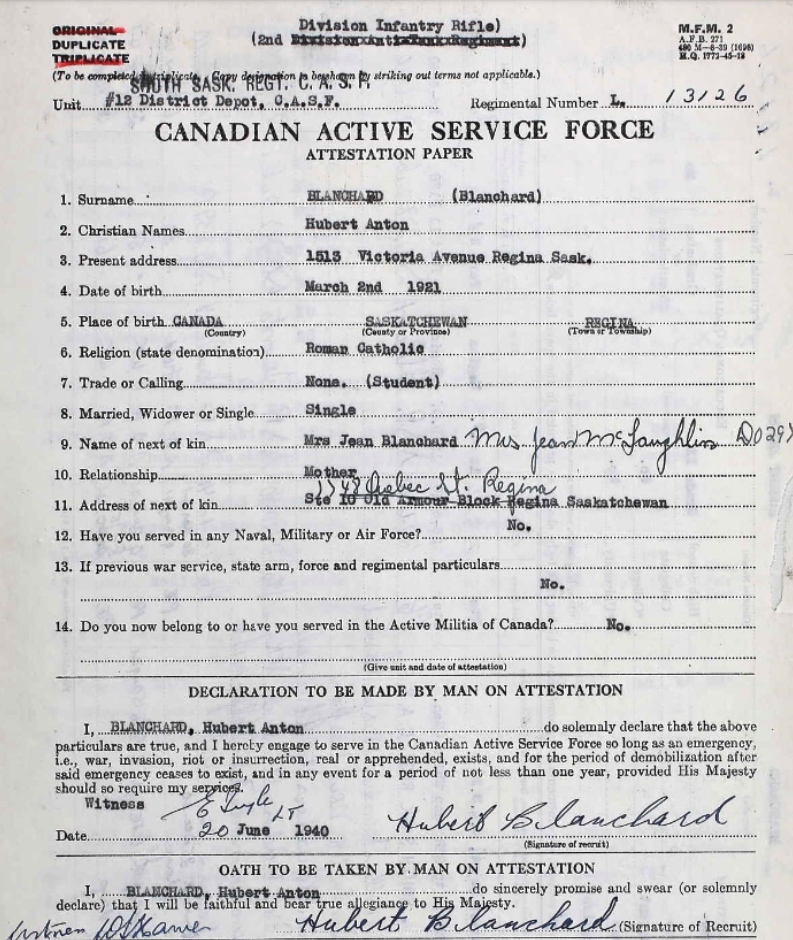 Division Infantry Rifle)
ORIGINAL
DUPLICATE
TRIPLICATE
(2nd Division Anti Tank Regiment)
M.F.M. 2
A.F.B. 271
H.Q. 1772-45-13
(To be completed in triplicate. Copy designation to be shown by striking out terms not applicable.)
SOUTH SASK. REGT. C. A. S. F.
Unit #12 District Depot, C.A.S.F. Regimental Number L. 13126
CANADIAN ACTIVE SERVICE FORCE
ATTESTATION PAPER
1. Surname BLANCHARD (Blanchard)
2. Christian Names Hubert Anton
3. Present address 1513 Victoria Avenue Regina Sask.
4. Date of birth March 2nd 1921
5. Place of birth CANADA SASKATCHEWAN REGINA
(Country) (County or Province) (Town or Township)
6. Religion (state denomination) Roman Catholic
7. Trade or Calling None. (Student)
8. Married, Widower or Single Single
9. Name of next of kin Mrs Jean Blanchard Mrs Jean McLaughlin
10. Relationship Mother
Quebec St. Regina
11. Address of next of kin Ste 10 Old Armour Block Regina Saskatchewan
12. Have you served in any Naval, Military or Air Force? No.
13. If previous war service, state arm, force and regimental particulars
No.
14. Do you now belong to or have you served in the Active Militia of Canada? No.
(Give unit and date of attestation)
DECLARATION TO BE MADE BY MAN ON ATTESTATION
I, BLANCHARD, Hubert Anton do solemnly declare that the above
particulars are true, and I hereby engage to serve in the Canadian Active Service Force so long as an emergency,
i.e., war, invasion, riot or insurrection, real or apprehended, exists, and for the period of demobilization after
said emergency ceases to exist, and in any event for a period of not less than one year, provided His Majesty
should so require my services.
Witness
Date 20 June 1940 Hubert Blanchard
(Signature of recruit)
OATH TO BE TAKEN BY MAN ON ATTESTATION
I, BLANCHARD, Hubert Anton do sincerely promise and swear (or solemnly
declare) that I will be faithful and bear true allegiance to His Majesty.
Hubert Blanchard (Signature of Recruit)